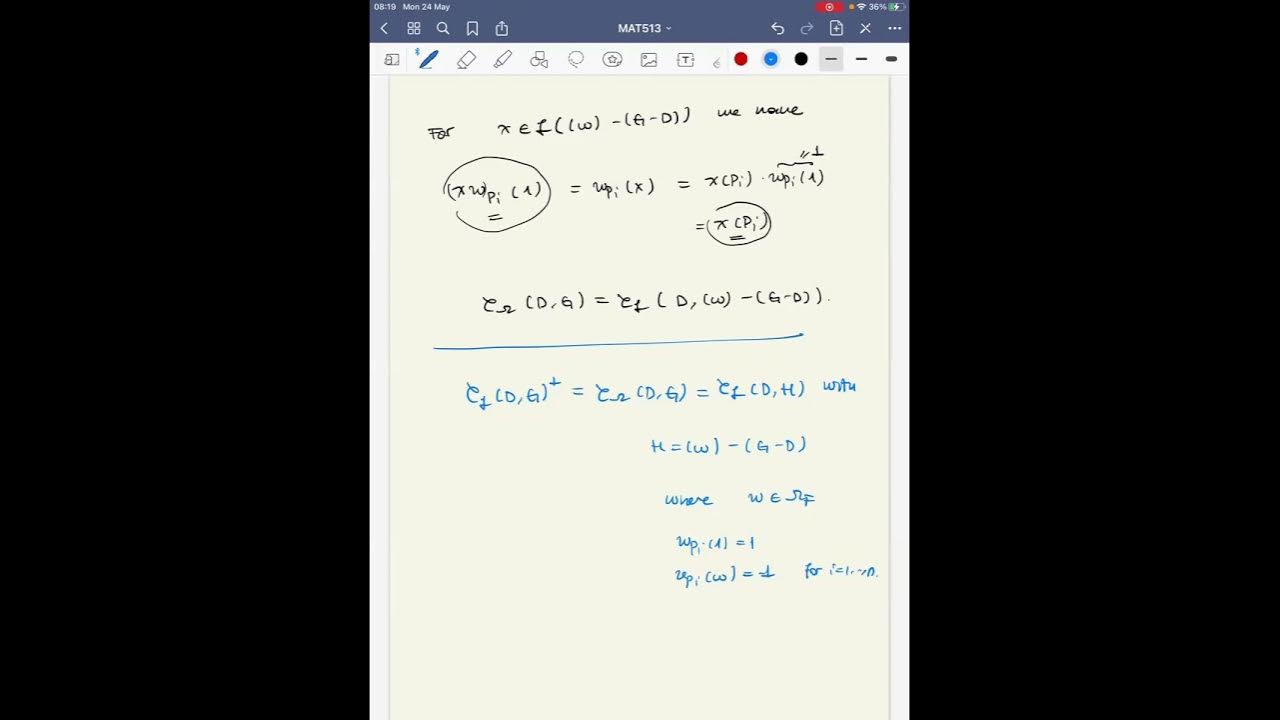 08:19 Mon 24 May
36%
MAT513
For x ∈ ℒ((ω) − (G−D)) we have
(xω)_{P_i}(1) = ω_{P_i}(x) = x(P_i) · ω_{P_i}(1)
= 1
= x(P_i)
C_Ω(D,G) = C_ℒ(D, (ω) − (G−D)).
C_ℒ(D,G)^⊥ = C_Ω(D,G) = C_ℒ(D,H) with
H = (ω) − (G−D)
where ω ∈ Ω_F
ω_{P_i}(1) = 1
v_{P_i}(ω) = −1 for i=1,..,n.